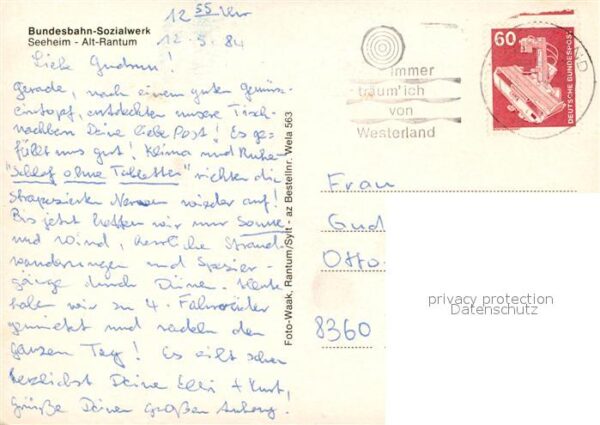 12 55 Uhr
Bundesbahn-Sozialwerk
Seeheim - Alt-Rantum
12.5.84
Liebe Gudrun!
Gerade, nach einem guten Gemüse-
eintopf, entdeckten unsere Tisch-
nachbarn Deine liebe Post! Es ge-
fällt uns gut! Klima und Ruhe
"Schlaf ohne Tabletten" richten die
strapazierten Nerven wieder auf!
Bis jetzt hatten wir nur Sonne
und Wind, herrliche Strand-
wanderungen und Spazier-
gänge durch Dünen. Heute
haben wir zu 4. Fahrräder
gemietet und radeln den
ganzen Tag! Es eilt schon
herzlichst Deine Elli + Kurt,
Grüße Deinen großen Anhang.
Foto-Waak, Rantum/Sylt - az Bestellnr. Wela 563
immer
träum' ich
von
Westerland
60
DEUTSCHE BUNDESPOST
Frau
Gud
Otto-
8360
privacy protection
Datenschutz